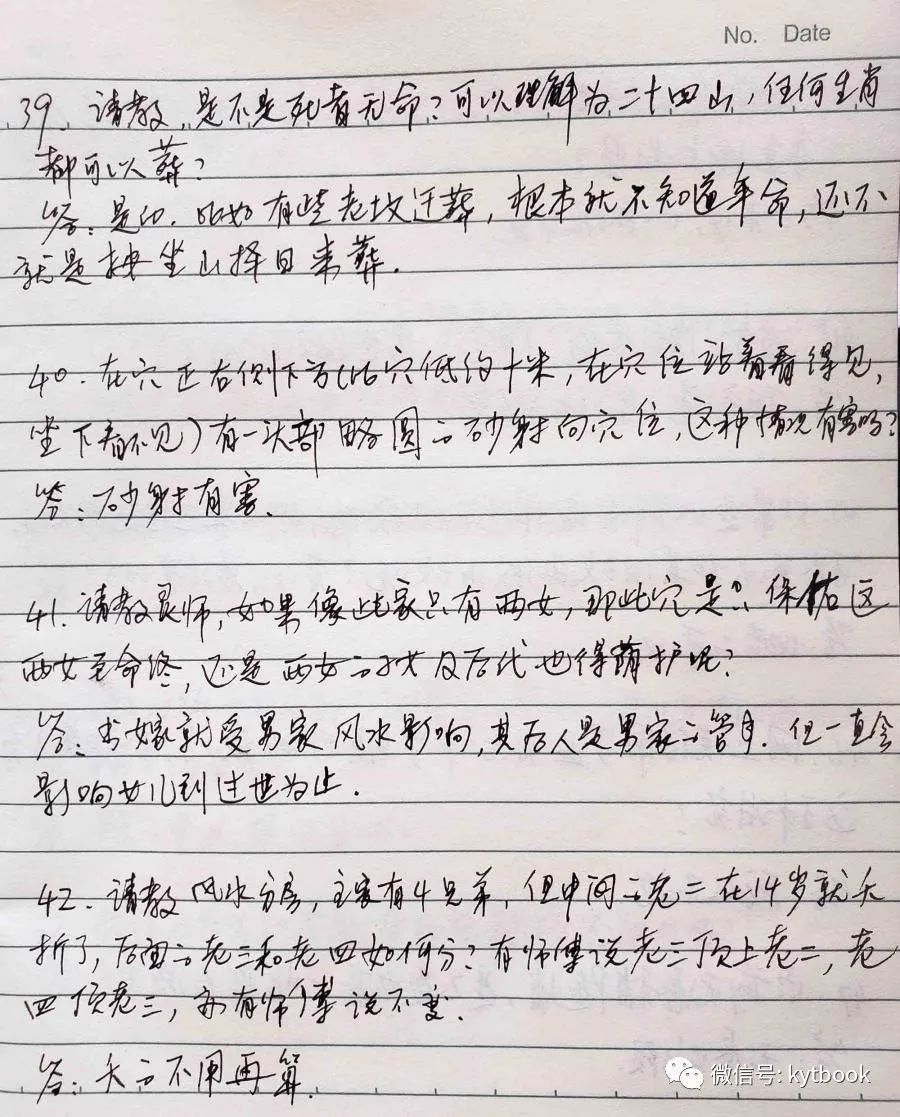 No. Date
39. 请教,是不是死者无命?可以理解为二十四山,任何生肖
都可以葬?
答:是的.比如有些老坟迁葬,根本就不知道年命,还不
就是按坐山择日来葬.
40.在穴正右侧下方(比穴低约十米,在穴位站着看得见,
坐下看不见)有一头部略圆的砂射向穴位,这种情况有害吗?
答:砂射有害.
41.请教良师,如果像此家只有两女,那此穴是只保佑这
两女至命终,还是两女的子女及后代也得荫护呢?
答:出嫁就受男家风水影响,其后人是男家的管.但一直会
影响女儿到过世为止.
42.请教风水分房,主家有4兄弟,但中间的老二在14岁就夭
折了,后面的老三和老四如何分?有师傅说老三顶上老二,老
四顶老三,亦有师傅说不变.
答:夭的不用再算.
微信号: kytbook